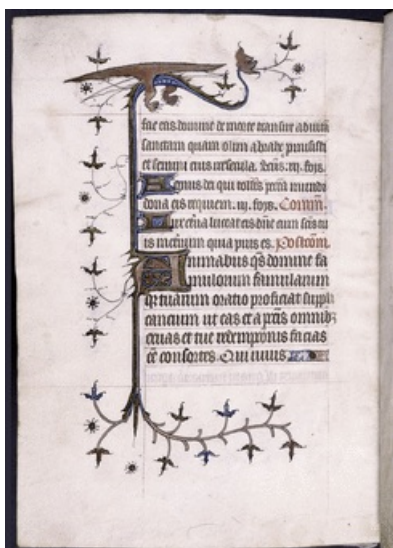 fac eas domine de morte transire ad uitā
sanctam quam olim abrahe pmisisti
et semini eius iij. foys.
Agnus dei qui tollis pccā mundi
dona eis requiem. iij. foys. Comm.
Lux etna luceat eis dne cum scis tu
is in etnum quia pius es. Postcom.
Animabus qs domine fa
mulorum famularum
qz tuarum oratio proficiat suppli
cancium ut eas et a pctis omnibz
exuas et tue redempcionis facias
ēē consortes. Qui uiuis